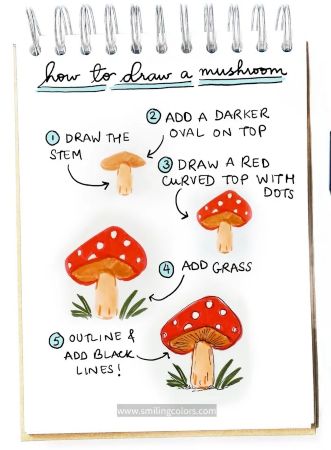 how to draw a mushroom
1 DRAW THE
STEM
2 ADD A DARKER
OVAL ON TOP
3 DRAW A RED
CURVED TOP WITH
DOTS
4 ADD GRASS
5 OUTLINE &
ADD BLACK
LINES!
www.smilingcolors.com